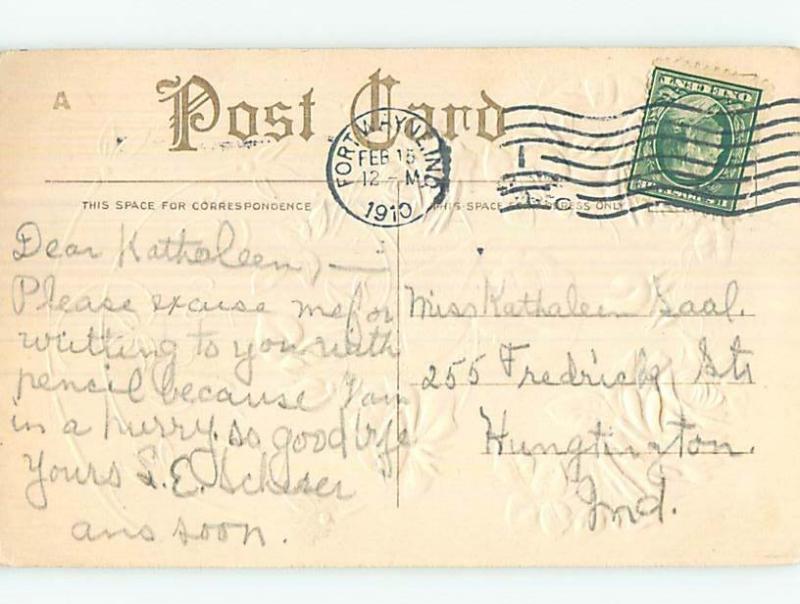 A
Post Card
FORT WAYNE, IND.
FEB 15
12 - M
1910
THIS SPACE FOR CORRESPONDENCE
THIS SPACE FOR ADDRESS ONLY
Dear Kathaleen, —
Please excuse me for
writting to you with
pencil because I am
in a hurry. so good bye
Yours S. E.
ans soon.
Miss Kathaleen Saal.
255 Fredrick Str
Hungtington.
Ind.